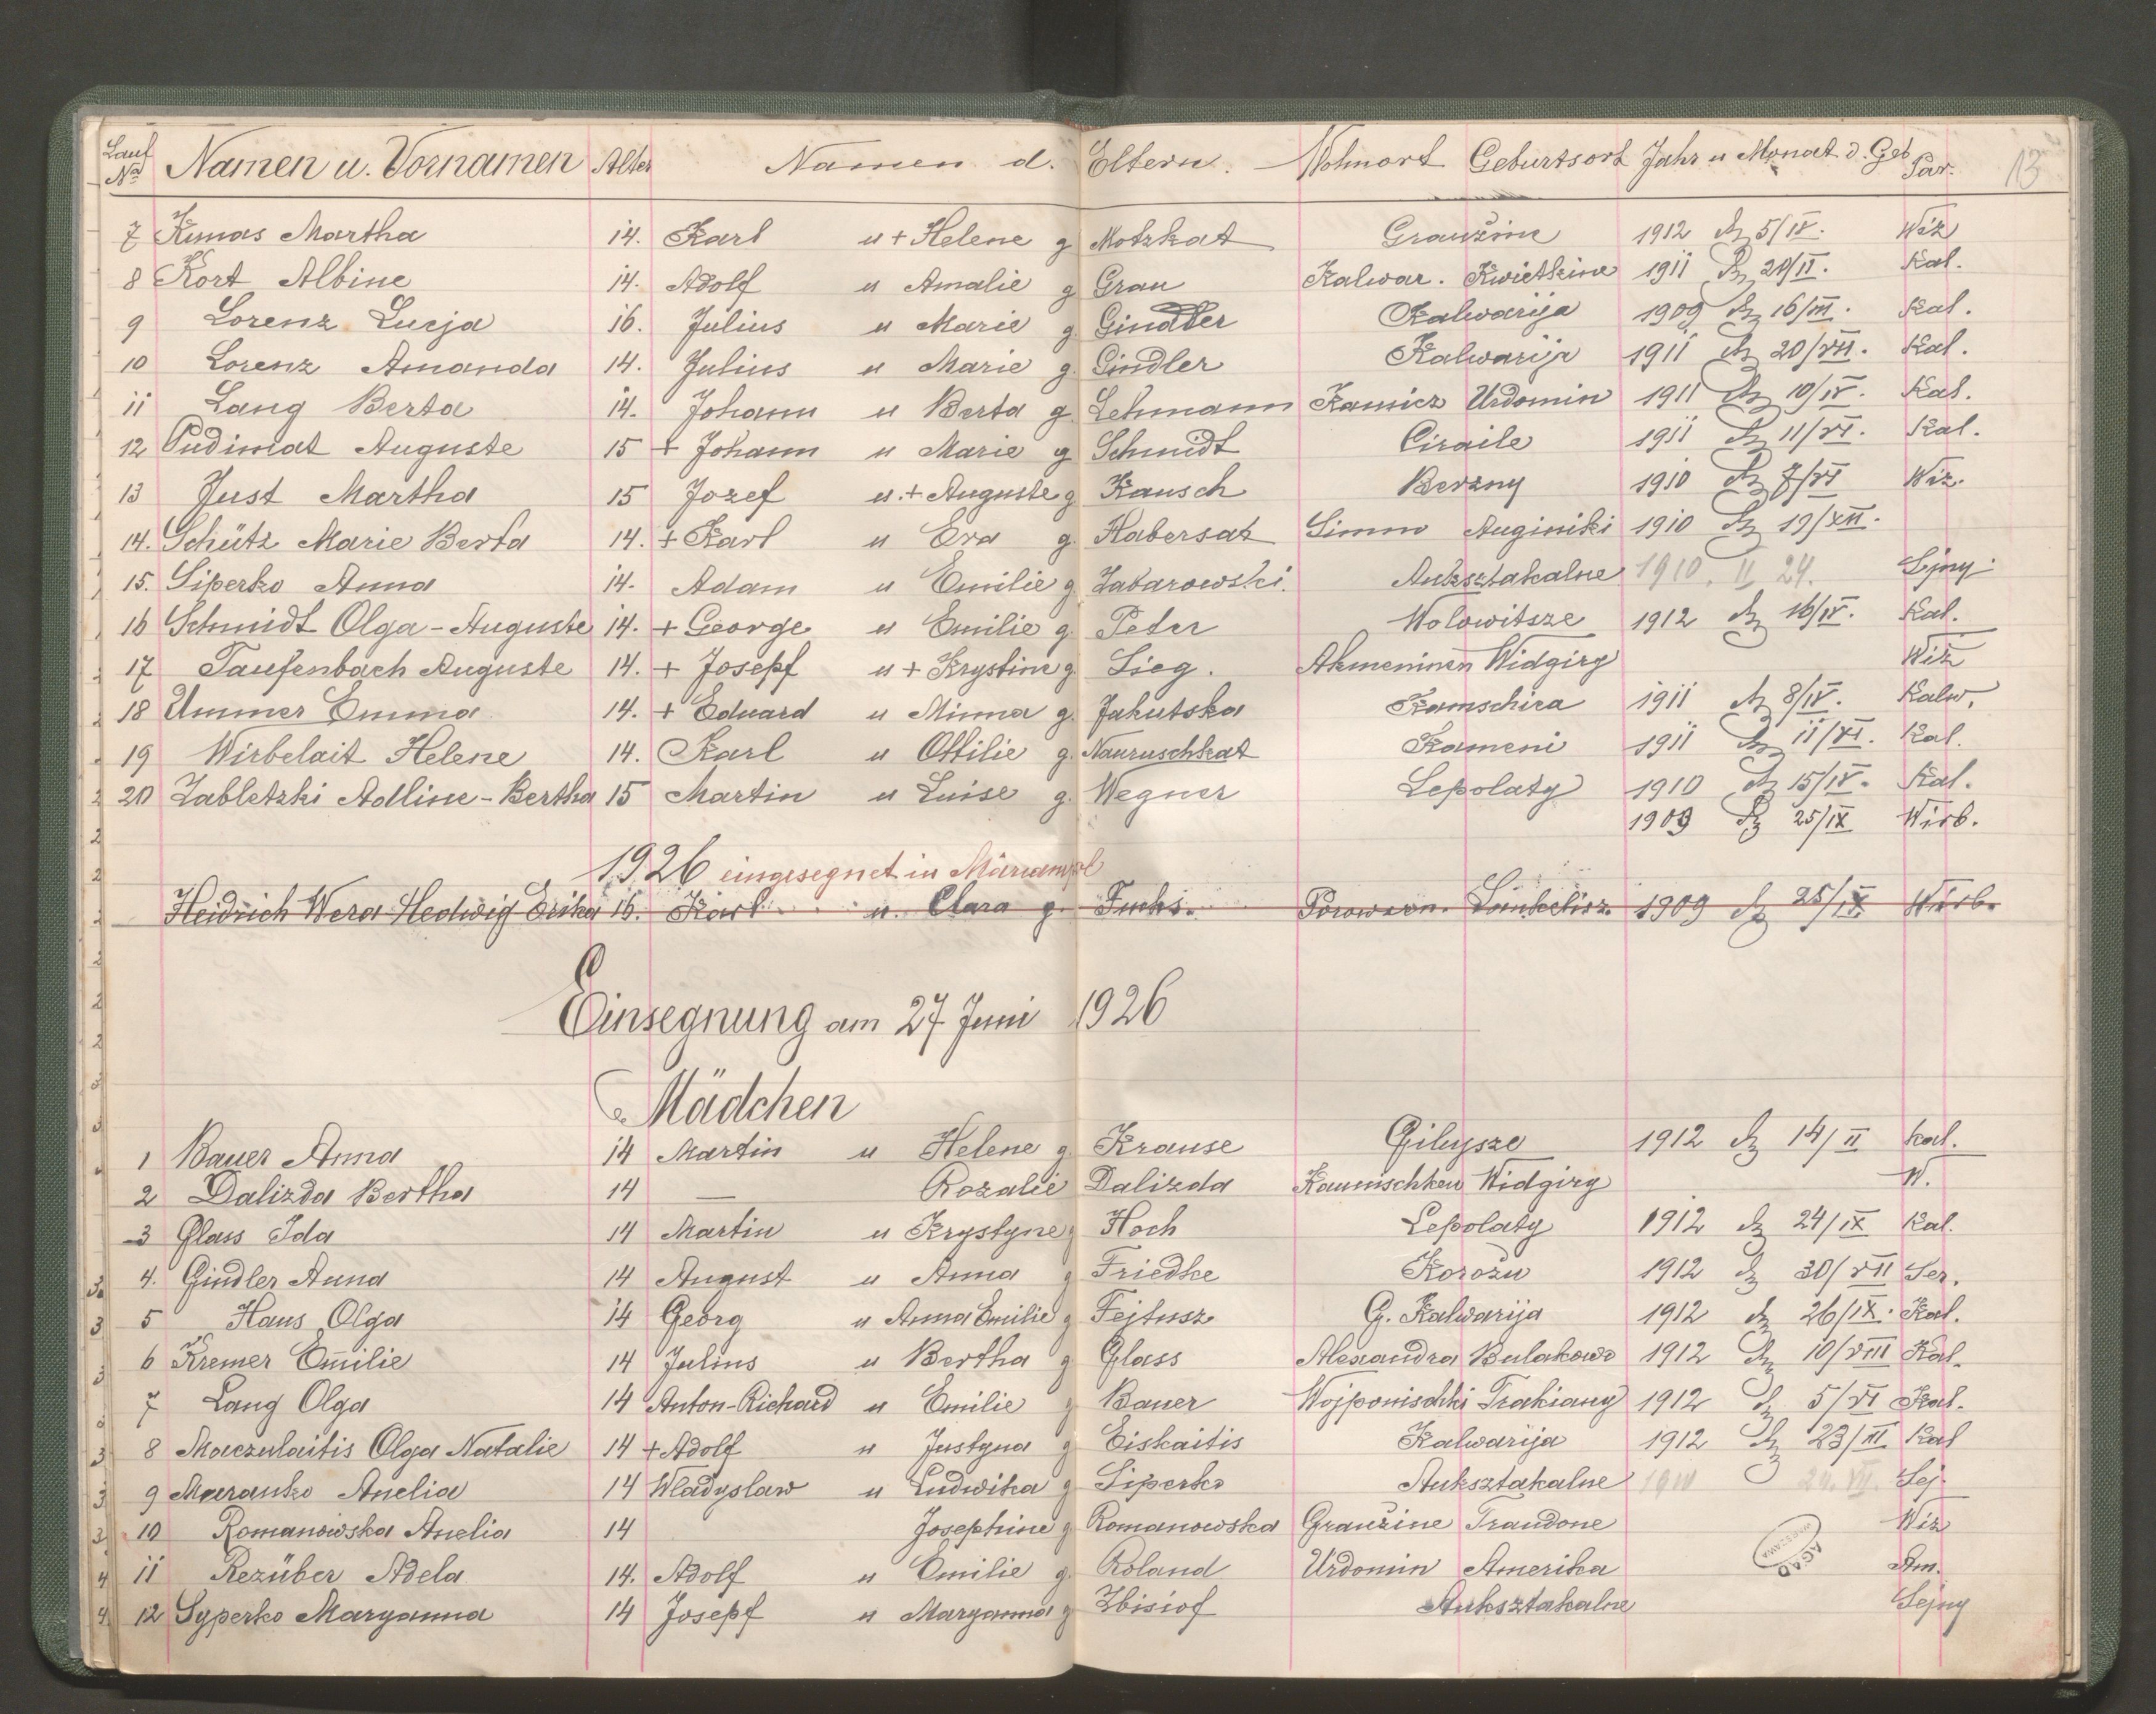 Lauf No Namen u. Vornamen Alter Namen d. Eltern. Wohnort Geburtsort Jahr u Monat d. Geb Par. 13
7 Kunas Martha 14. Karl u + Helene g Motzkat Graužine 1912 d 5/IV. Wiz
8 Kort Albine 14. Adolf u Amalie g Grau Kalwar. Kwietkine 1911 d 20/II. Kal.
9 Lorenz Lucja 16. Julius u Marie g. Gindler Kalwarija 1909 d 16/III. Kal.
10 Lorenz Amanda 14. Julius u Marie g. Gindler Kalwarija 1911 d 20/VII. Kal.
11 Lang Berta 14. Johann u Berta g. Lehmann Kamicz Urdomin 1911 d 10/IV. Kal.
12 Pudimat Auguste 15 + Johann u Marie g Schmidt Ciraile 1911 d 11/VI. Kal.
13 Just Martha 15 Jozef u. + Auguste g Kausch Berzny 1910 d 7/VI Wiz.
14. Schütz Marie Berta 14. + Karl u Eva g. Habersat Simno Auginiki 1910 d 19/XII.
15. Siperko Anna 14. Adam u Emilie g Zabarowski. Auksztakalne 1910. II 24. Sejny
16 Schmidt Olga-Auguste 14. + George u Emilie g. Peter Wolowitsze 1912 d 16/IV. Kal.
17 Taufenbach Auguste 14. + Josepf u + Krystine g. Sieg. Akmeninen Widgiry Wiz
18 Ummer Emma 14. + Eduard u Minna g. Jakutska Kamschiza 1911 d 8/IV. Kalw.
19 Wirbelait Helene 14. Karl u Ottilie g. Nauruschkat Kameni 1911 d 11/XI. Kal.
20 Zabletzki Adline-Bertha 15 Martin u Luise g. Wegner Lepolaty 1910 d 15/IV. Kal.
1909 d 25/IX Wirb.
1926 eingesegnet in Mariampol
Heidrich Wera Hedwig Erika 16. Karl u. Clara g. Fuchs. 1909 d 25/IX Wirb.
Einsegnung am 27 Juni 1926
Mädchen
1 Bauer Anna 14 Martin u Helene g. Krause Gilujsze 1912 d 14/II Kal.
2 Dalizda Bertha 14 — Rozalie Dalizda Kaunischken Widgiry W.
3 Glass Ida 14 Martin u Krystyne g Hoch Lepolaty 1912 d 24/IX Kal.
4. Gindler Anna 14 August u Anna g Friedke Korožu 1912 d 30/VII Ser.
5 Haus Olga 14 Georg u Anna Emilie g Fejtusz G. Kalwarija 1912 d 26/IX. Kal.
6 Kremer Emilie 14 Julius u Bertha g Glass Alexandra Bulakowo 1912 d 10/VIII Kal.
7 Lang Olga 14 Anton-Richard u Emilie g Bauer Wojponischki Trakiany 1912 d 5/VI Kal.
8 Maczulaitis Olga Natalie 14 + Adolf u Justyna g Eiskaitis Kalwarija 1912 d 23/III Kal
9 Maranko Anelia 14 Wladyslaw u Ludwika g Siperko Auksztakalne 1910 24. VII. Sej.
10 Romanowska Anelia 14 Josephine g Romanowska Graužine Trandone Wiz
11 Rezüber Adela 14. Adolf u Emilie g. Roland Urdomin Amerika Am.
12 Syperko Maryanna 14 Josepf u Maryanna g Zbisiof Auksztakalne Sejny
AGAD WARSZAWA